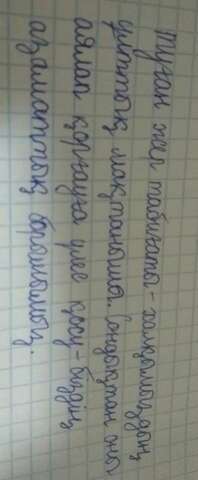 Туған жер табиғаты - халқымыздың
ұлттық мақтанышы. Сондықтан оны
аялап қорғауға үлес қосу - біздің
азаматтық борышымыз.